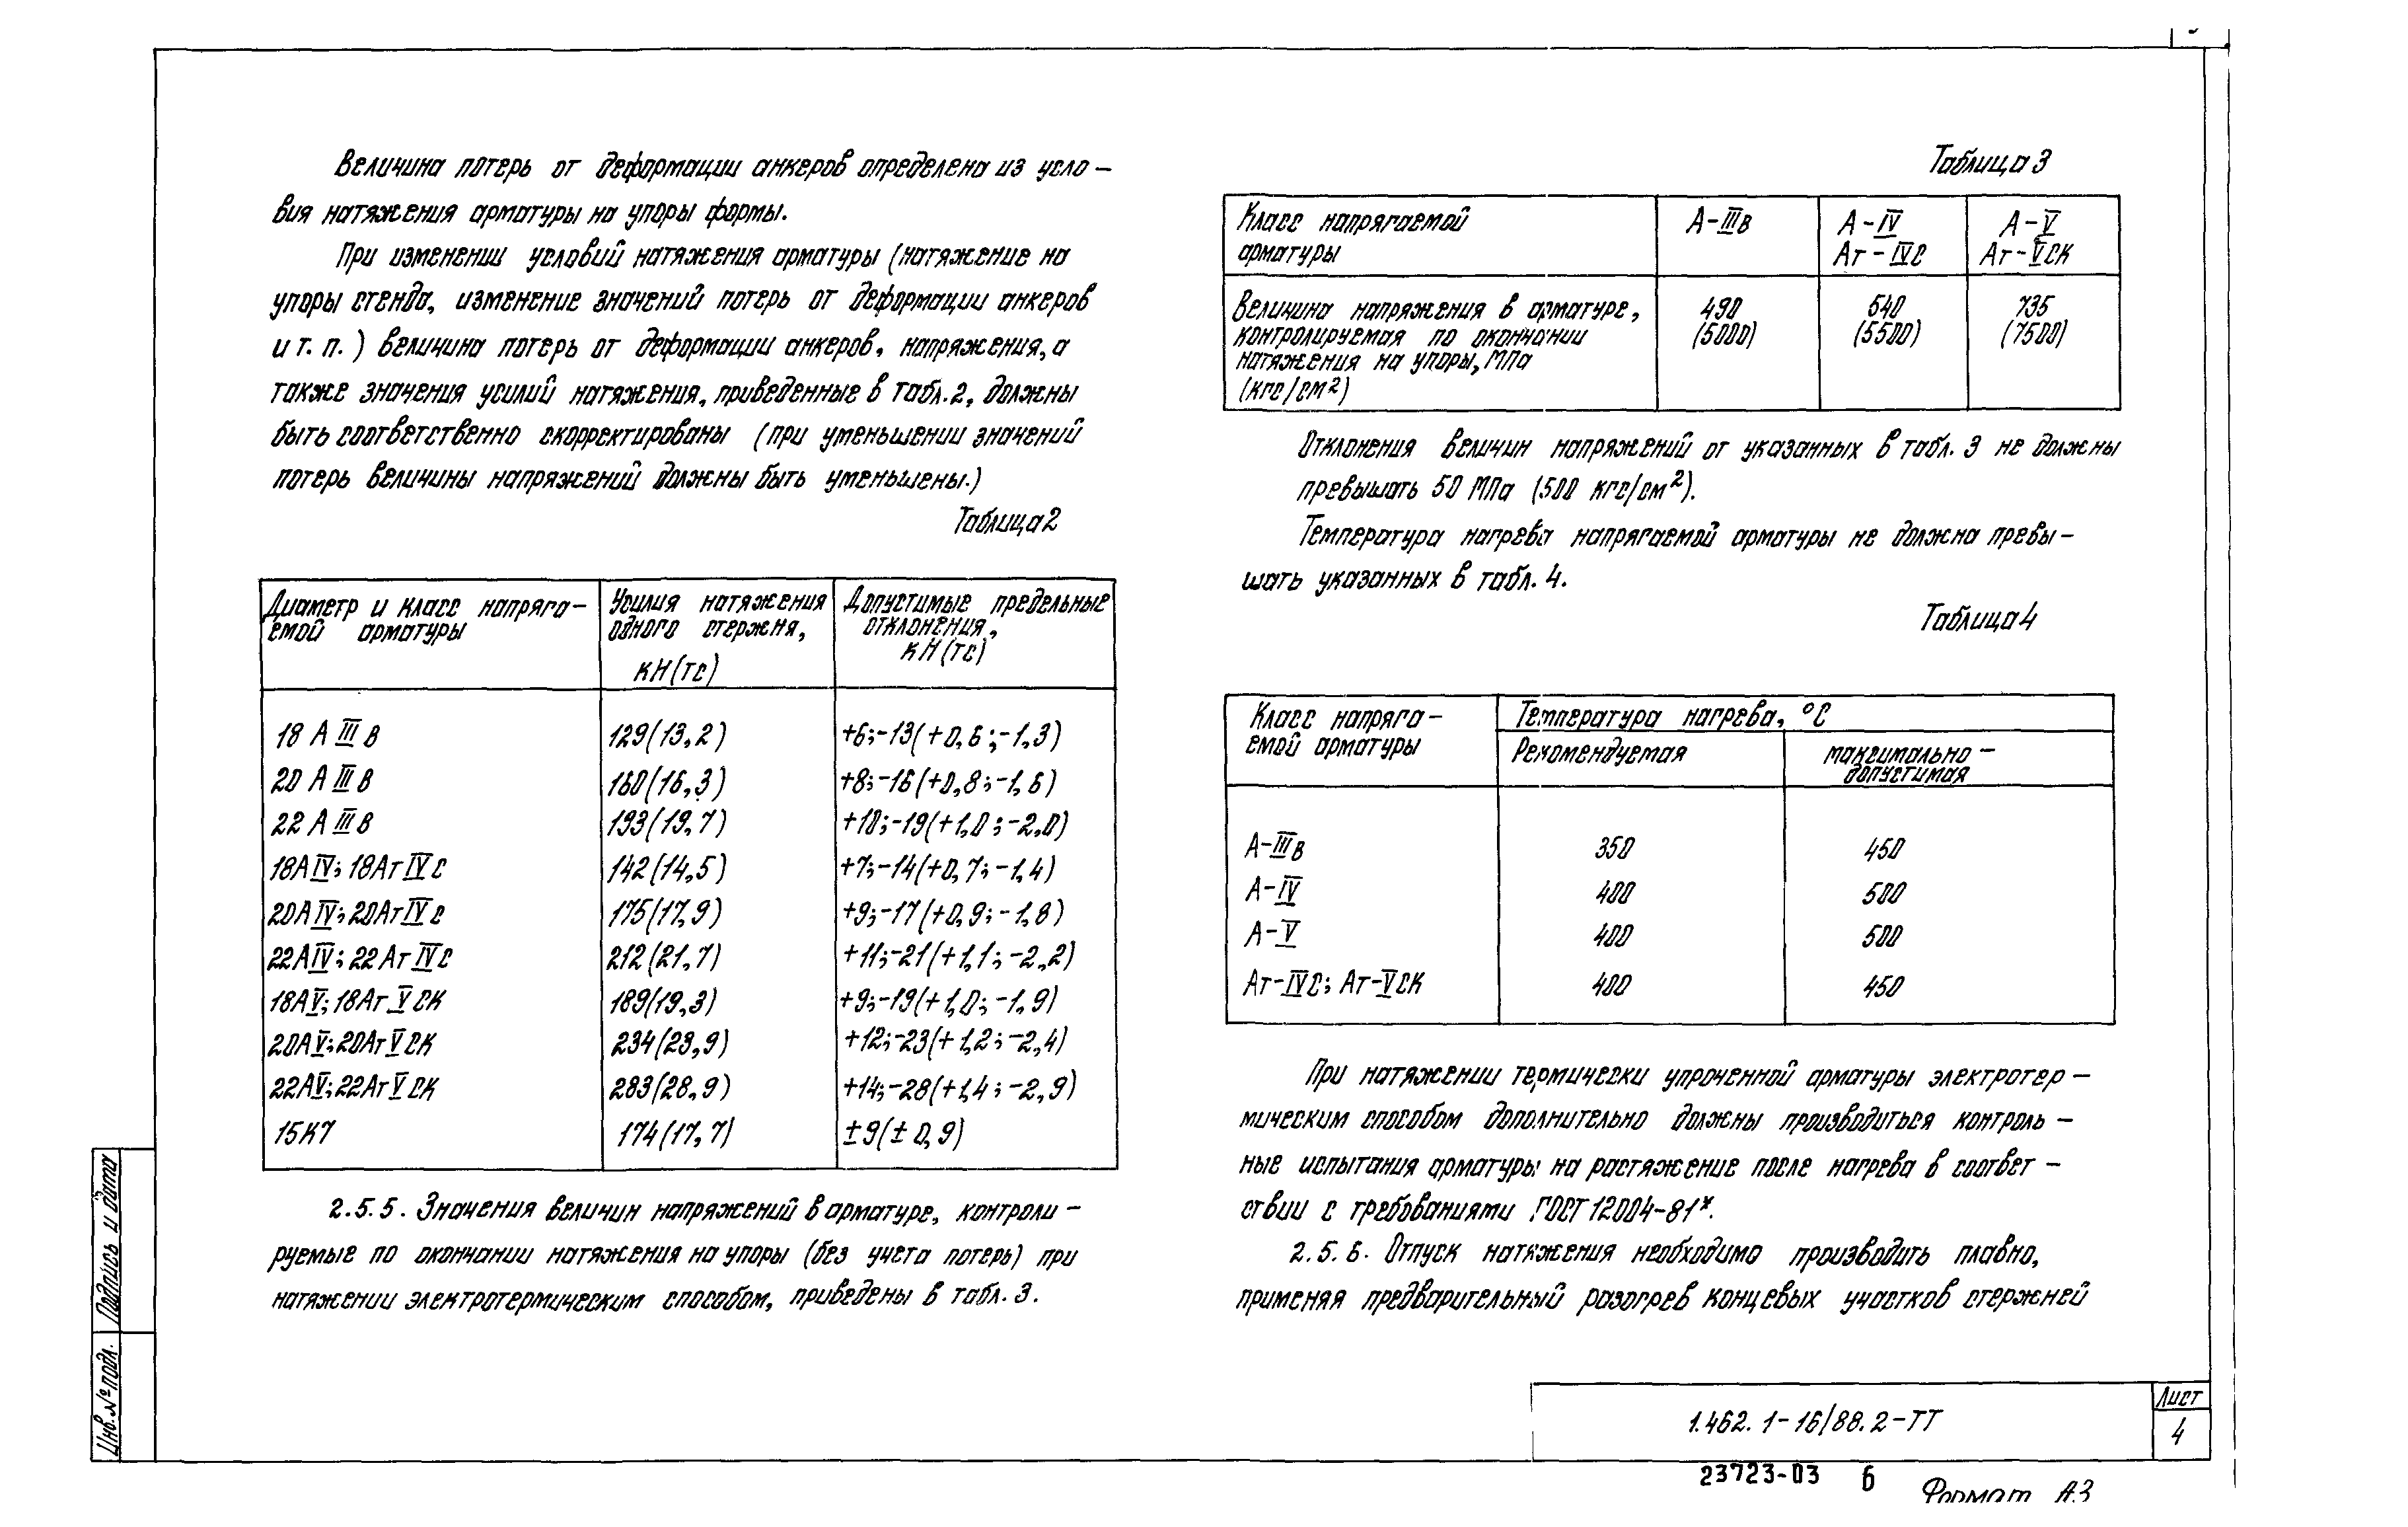 Величина потерь от деформации анкеров определена из усло-
вия натяжения арматуры на упоры формы.
При изменении условий натяжения арматуры (натяжение на
упоры стенда, изменение значений потерь от деформации анкеров
и т. п.) величина потерь от деформации анкеров, напряжения, а
также значения усилий натяжения, приведенные в табл. 2, должны
быть соответственно скорректированы (при уменьшении значений
потерь величины напряжений должны быть уменьшены.)
Таблица 2
Диаметр и класс напряга-
емой арматуры
Усилия натяжения
одного стержня,
кН(тс)
Допустимые предельные
отклонения,
кН(тс)
18 А III в 129(13,2) +6;-13(+0,6;-1,3)
20 А III в 160(16,3) +8;-16(+0,8;-1,6)
22 А III в 193(19,7) +10;-19(+1,0;-2,0)
18А IV; 18Ат IV С 142(14,5) +7;-14(+0,7;-1,4)
20А IV; 20Ат IV С 175(17,9) +9;-17(+0,9;-1,8)
22А IV; 22Ат IV С 212(21,7) +11;-21(+1,1;-2,2)
18А V; 18Ат V СК 189(19,3) +9;-19(+1,0;-1,9)
20А V; 20Ат V СК 234(23,9) +12;-23(+1,2;-2,4)
22А V; 22Ат V СК 283(28,9) +14;-28(+1,4;-2,9)
15К7 174(17,7) ±9(±0,9)
2.5.5. Значения величин напряжений в арматуре, контроли-
руемые по окончании натяжения на упоры (без учета потерь) при
натяжении электротермическим способом, приведены в табл. 3.
Таблица 3
Класс напрягаемой
арматуры
А-IIIв
А-IV
Ат-IVС
А-V
Ат-VСК
Величина напряжения в арматуре,
контролируемая по окончании
натяжения на упоры, МПа
(кгс/см²)
490
(5000)
540
(5500)
735
(7500)
Отклонения величин напряжений от указанных в табл. 3 не должны
превышать 50 МПа (500 кгс/см²).
Температура нагрева напрягаемой арматуры не должна превы-
шать указанных в табл. 4.
Таблица 4
Класс напряга-
емой арматуры
Температура нагрева, °С
Рекомендуемая
максимально-
допустимая
А-IIIв 350 450
А-IV 400 500
А-V 400 500
Ат-IVС; Ат-VСК 400 450
При натяжении термически упрочненной арматуры электротер-
мическим способом дополнительно должны производиться контроль-
ные испытания арматуры на растяжение после нагрева в соответ-
ствии с требованиями ГОСТ 12004-81*.
2.5.6. Отпуск натяжения необходимо производить плавно,
применяя предварительный разогрев концевых участков стержней
Инв.№ подл. Подпись и дата
1.462.1-16/88.2-ТТ
Лист
4
23723-03 6
Формат А3